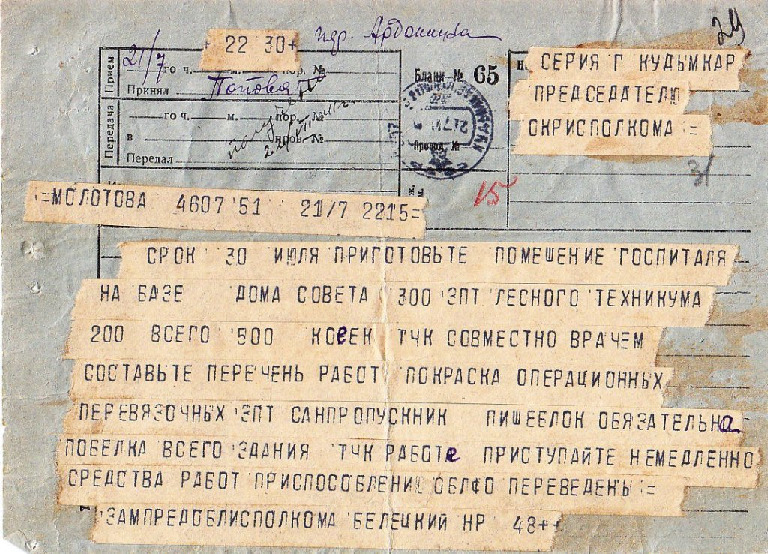 24
22 30+
21/7
Прием
го ч. м. пор. №
Принял Попова
Бланк № 65
Передача
го ч. м. пор. №
в пров. №
Передал
Провод. №
15
31
СЕРИЯ Г КУДЫМКАР
ПРЕДСЕДАТЕЛЮ
ОКРИСПОЛКОМА =
=МОЛОТОВА 4607 51 21/7 2215=
СРОК 30 ИЮЛЯ ПРИГОТОВЬТЕ ПОМЕШЕНИЕ ГОСПИТАЛЯ
НА БАЗЕ ДОМА СОВЕТА 300 ЗПТ ЛЕСНОГО ТЕХНИКУМА
200 ВСЕГО 500 КОеЕК ТЧК СОВМЕСТНО ВРАЧЕМ
СОСТАВЬТЕ ПЕРЕЧЕНЬ РАБОТ ПОКРАСКА ОПЕРАЦИОННЫХ
ПЕРЕВЯЗОЧНЫХ ЗПТ САНПРОПУСКНИК ПИШЕБЛОК ОБЯЗАТЕЛЬНа
ПОБЕЛКА ВСЕГО ЗДАНИЯ ТЧК РАБОТе ПРИСТУПАЙТЕ НЕМЕДЛЕННО
СРЕДСТВА РАБОТ ПРИСПОСОБЛЕНИЮ ОБЛФО ПЕРЕВЕДЕНЫ =
ЗАМПРЕДОБЛИСПОЛКОМА БЕЛЕЦКИЙ НР 48++